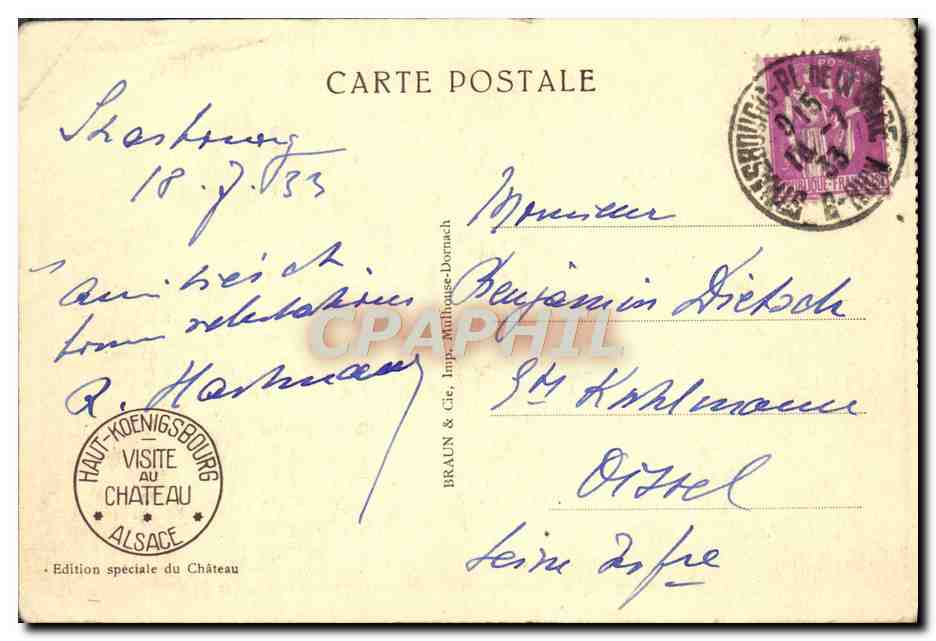 CARTE POSTALE
Strasbourg
18.7.33
amitiés et
bonnes salutations
R. Hartmann
HAUT-KOENIGSBOURG
VISITE
AU
CHATEAU
ALSACE
Edition spéciale du Château
BRAUN & Cie, Imp. Mulhouse-Dornach
CPAPHIL
Monsieur
Benjamin Dietsch
Ets Kuhlmann
Oissel
Seine Infre
STRASBOURG-PL. DE LA
9 15
33